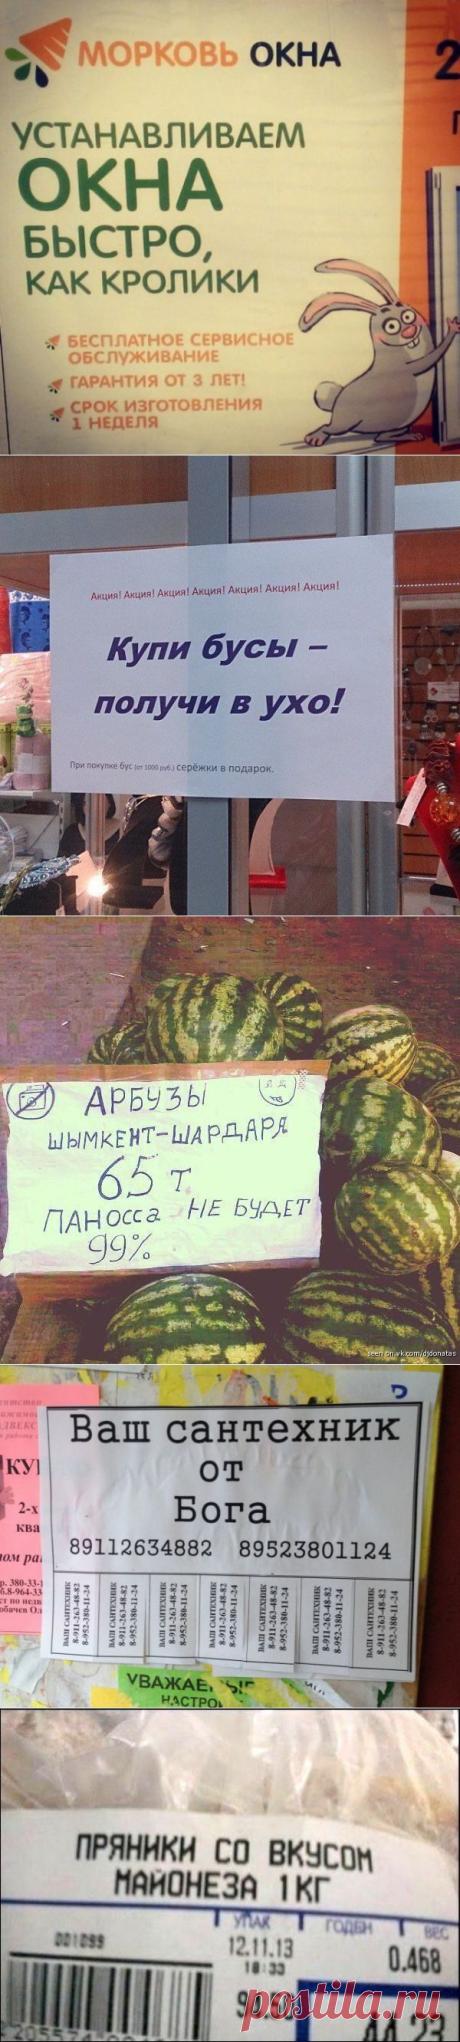 МОРКОВЬ ОКНА
2
УСТАНАВЛИВАЕМ
ОКНА
БЫСТРО,
КАК КРОЛИКИ
БЕСПЛАТНОЕ СЕРВИСНОЕ
ОБСЛУЖИВАНИЕ
ГАРАНТИЯ ОТ 3 ЛЕТ!
СРОК ИЗГОТОВЛЕНИЯ
1 НЕДЕЛЯ
Акция! Акция! Акция! Акция! Акция! Акция! Акция!
Купи бусы –
получи в ухо!
При покупке бус (от 1000 руб.) серёжки в подарок.
АРБУЗЫ
ШЫМКЕНТ-ШАРДАРЯ
65 т
ПАНОССА НЕ БУДЕТ
99%
seen on vk.com/djdonatas
Ваш сантехник
от
Бога
89112634882 89523801124
ВАШ САНТЕХНИК
8-911-263-48-82
8-952-380-11-24
ВАШ САНТЕХНИК
8-911-263-48-82
8-952-380-11-24
ВАШ САНТЕХНИК
8-911-263-48-82
8-952-380-11-24
ВАШ САНТЕХНИК
8-911-263-48-82
8-952-380-11-24
ВАШ САНТЕХНИК
8-911-263-48-82
8-952-380-11-24
ВАШ САНТЕХНИК
8-911-263-48-82
8-952-380-11-24
ВАШ САНТЕХНИК
8-911-263-48-82
8-952-380-11-24
2-х
ква
ПРЯНИКИ СО ВКУСОМ
МАЙОНЕЗА 1КГ
УПАК ГОДЕН ВЕС
001099
12.11.13
0.468
18:33
postila.ru